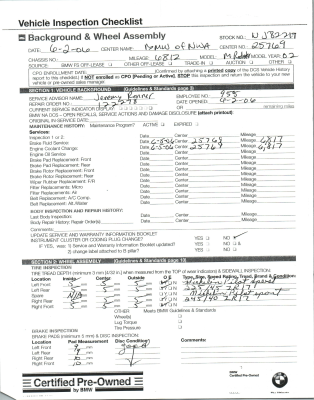 Vehicle Inspection Checklist
Background & Wheel Assembly
STOCK NO.
DATE: 6-2-06 CENTER NAME: BMW of NWA CENTER NO: 25769
CHASSIS: MILEAGE: 6812 MODEL: MODEL YEAR: 02
SOURCE: BMW FS OFF-LEASE OTHER OFF-LEASE TRADE-IN AUCTION OTHER
CPO ENROLLMENT DATE: (Confirmed by attaching a printed copy of the DCS Vehicle History
report to this checklist) If NOT enrolled as CPO (Pending or Active), STOP the inspection and return the vehicle to your new
vehicle or pre-owned sales manager.
SECTION 1: VEHICLE BACKGROUND (Guidelines & Standards page 3)
SERVICE ADVISOR NAME: Jeremy EMPLOYEE NO. 955
REPAIR ORDER NO. 122278 DATE OPENED: 6-2-06
CURRENT SERVICE INDICATOR DISPLAY: OR remaining miles
BMW NA DCS - OPEN RECALLS, SERVICE ACTIONS AND DAMAGE DISCLOSURE (attach printout)
ORIGINAL IN-SERVICE DATE:
MAINTENANCE HISTORY: Maintenance Program? ACTIVE EXPIRED
Services:
Inspection 1 or 2: Date Center Mileage
Brake Fluid Service: Date 6-5-06 Center 25769 Mileage 6,817
Engine Coolant Change: Date 6-5-06 Center 25769 Mileage 6,817
Engine Oil Service: Date Center Mileage
Brake Pad Replacement: Front Date Center Mileage
Brake Pad Replacement: Rear Date Center Mileage
Brake Rotor Replacement: Front Date Center Mileage
Brake Rotor Replacement: Rear Date Center Mileage
Wiper Rubber Replacement: F/R Date Center Mileage
Filter Replacements: Micro Date Center Mileage
Filter Replacements: Air Date Center Mileage
Belt Replacement: A/C Comp. Date Center Mileage
Belt Replacement: Alt/Water Date Center Mileage
BODY INSPECTION AND REPAIR HISTORY:
Body Inspection: Date Center Mileage
Body Repair History: Repair Order(s) Date Center Mileage
Comments:
UPDATE SERVICE AND WARRANTY INFORMATION BOOKLET YES NO
INSTRUMENT CLUSTER OR CODING PLUG CHANGED? YES NO
IF YES, was: 1) Service and Warranty Information Booklet updated? YES NO &
2) change label attached to B pillar? YES NO
SECTION 2: WHEEL ASSEMBLY (Guidelines & Standards page 13)
TIRE INSPECTION
Location Inside Center Outside OK Tire, Size, Speed Rating, Tread, Brand & Condition:
Left Front 5 5 5 Y N Michelin Pilot Sport
Left Rear 5 5 5 Y N
Spare N/A Y N
Right Rear 5 5 5 Y N
Right Front 5 5 5 Y N
OTHER Meets BMW Guidelines & Standards
Wheel(s)
Lug Torque
Tire Pressure
BRAKE INSPECTION
BRAKE PADS (minimum 5 mm) & DISC INSPECTION:
Location Pad Measurement Disc Condition Comments:
Left Front 9 mm good
Left Rear 9 mm
Right Rear 10 mm
Right Front 10 mm
Certified Pre-Owned
by BMW
BMW
Certified
Pre-Owned